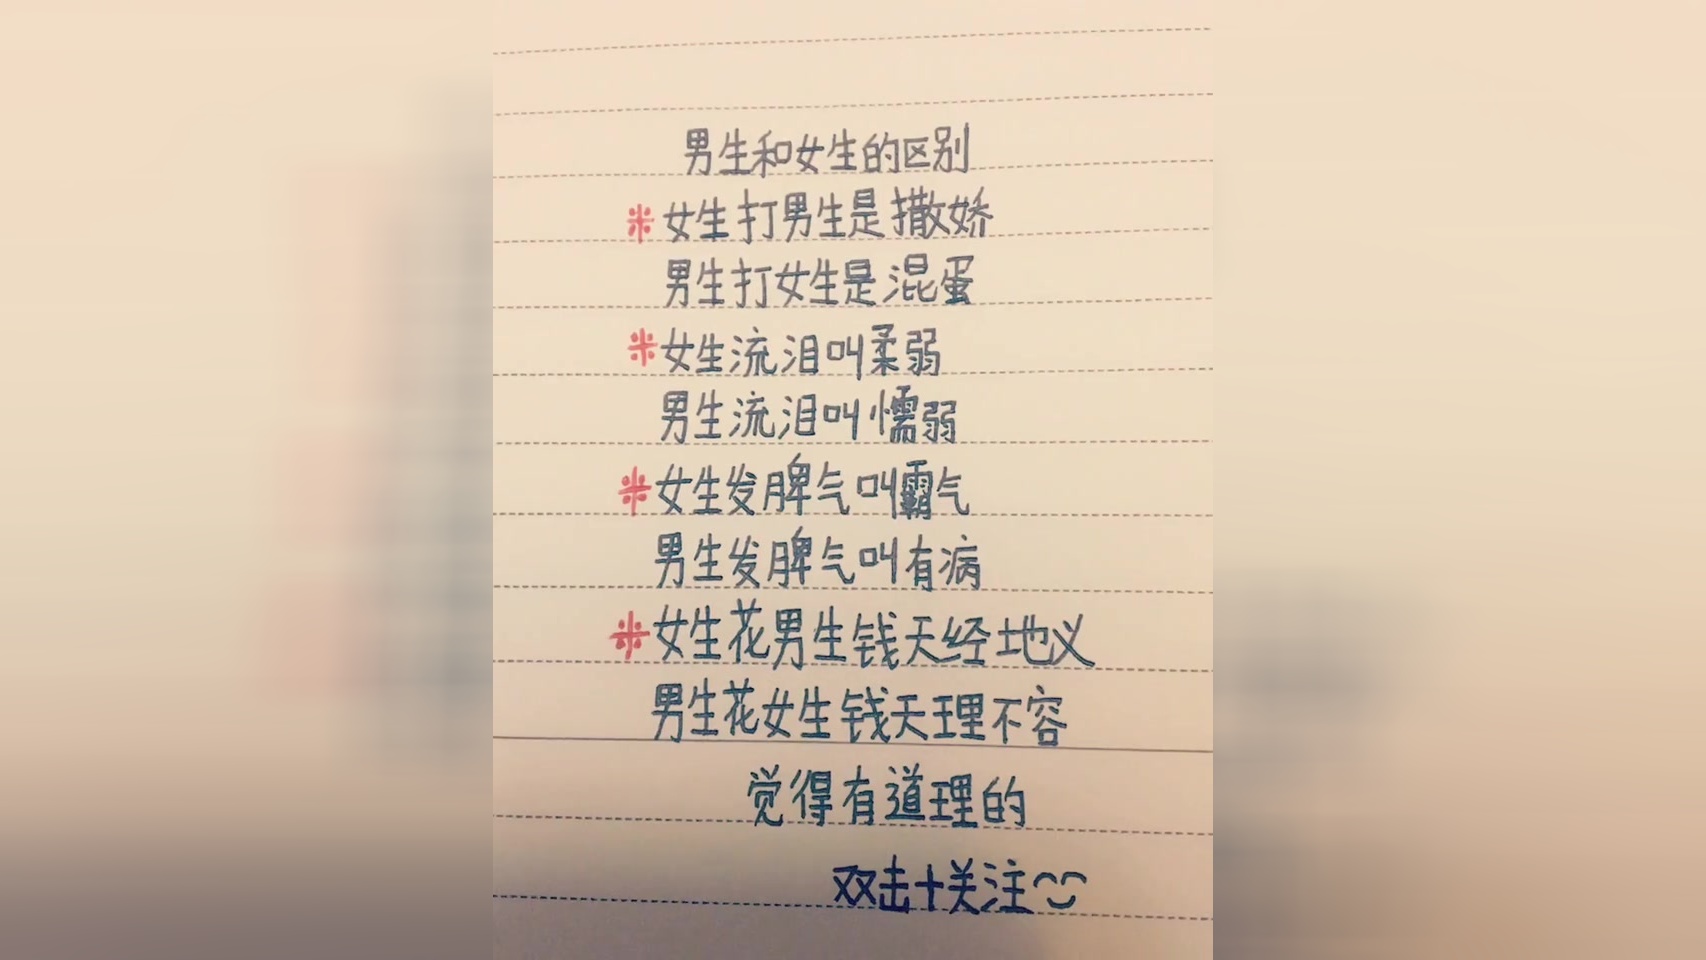 男生和女生的区别
※女生打男生是撒娇
男生打女生是混蛋
※女生流泪叫柔弱
男生流泪叫懦弱
※女生发脾气叫霸气
男生发脾气叫有病
※女生花男生钱天经地义
男生花女生钱天理不容
觉得有道理的
双击+关注